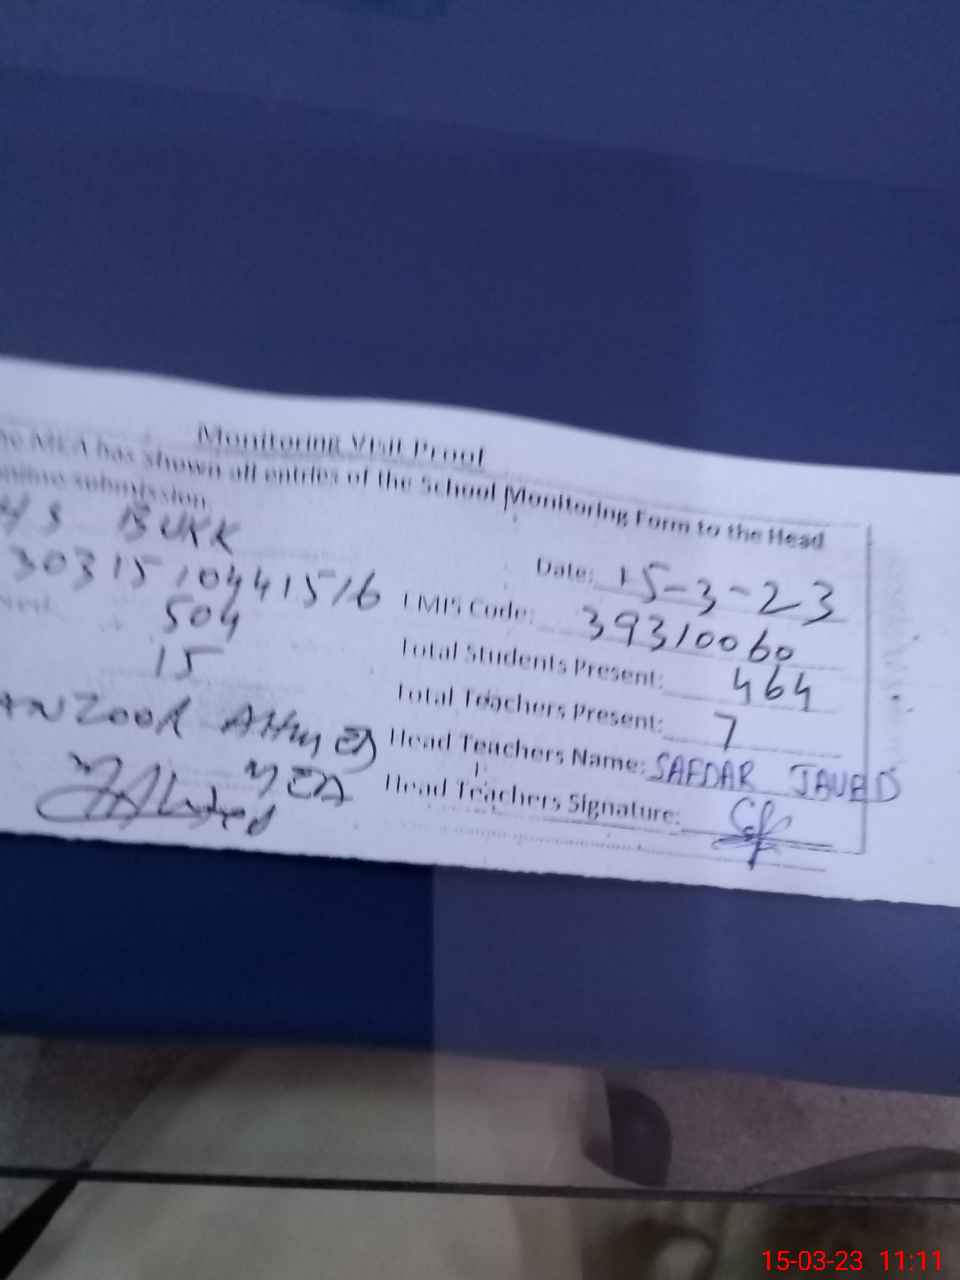 Monitoring Visit Proof
MEA has shown all entries of the School Monitoring Form to the Head
online submission.
BUKK
Date: 15-3-23
3031510441516
EMIS Code: 39310060
504
Total Students Present: 464
15
Total Teachers Present: 7
ANZOOR AHMED
Head Teachers Name: SAFDAR JAVED
MEA
Head Teachers Signature:
15-03-23 11:11